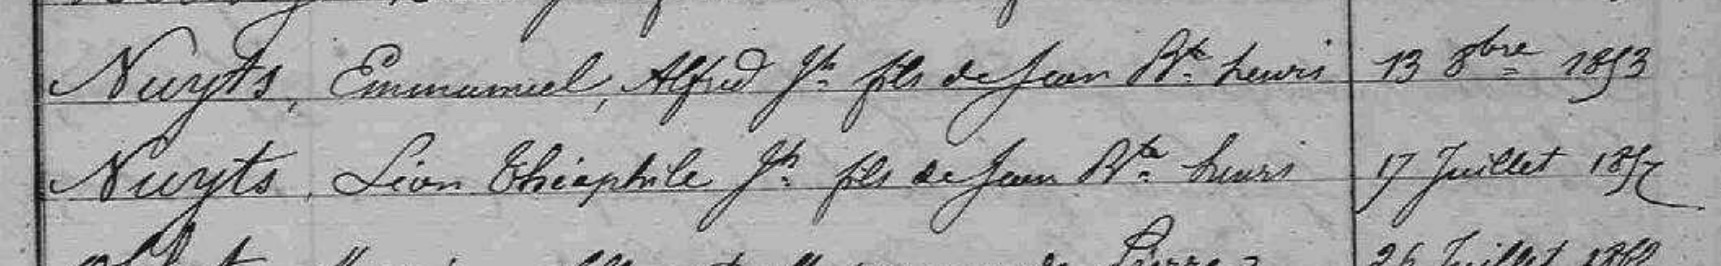 Nuyts, Emmanuel, Alfred Jh fils de Jean Bte henri 13 8bre 1853
Nuyts, Léon Théophile Jh fils de Jean Bte henri 17 Juillet 1857
Pierre 26 Juillet